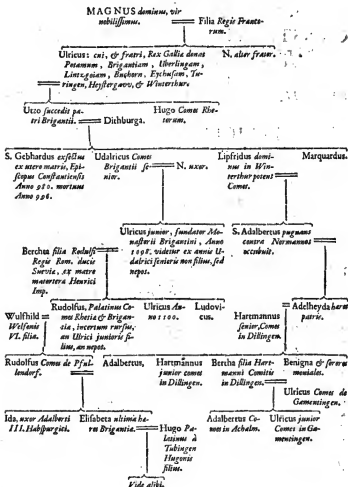 MAGNUS dominus, vir
nobilissimus.
Filia Regis Franco-
rum.
Ulricus: cui, & fratri, Rex Galliæ donat
Potamum, Brigantiam, Uberlingam,
Lintzgoiam, Buchorn, Eychusam, Tu-
ringen, Heystergavv, & Winterthur.
N. alter frater.
Utzo succedit pa-
tri Brigantii.
Dithburga.
Hugo Comes Rhe-
torum.
S. Gebhardus exsectus
ex utero matris, Epi-
scopus Constantiensis
Anno 980. mortuus
Anno 996.
Udalricus Comes
Brigantii se-
nior.
N. uxor.
Lipfridus domi-
nus in Win-
terthur potens
Comes.
Marquardus.
Ulricus junior, fundator Mo-
nasterii Brigantini, Anno
1098. videtur ex annis U-
dalrici senioris non filius, sed
nepos.
S. Adalbertus pugnans
contra Normannos
occubuit.
Berchta filia Rodulfi
Regis Rom. ducis
Suevia, ex matre
matertera Henrici
Imp.
Wulfhild
Welfonis
VI. filia.
Rudolfus, Palatinus Co-
mes Rhetia & Brigan-
tia, incertum rursus,
an Ulrici junioris fi-
lius, an nepos.
Ulricus An-
no 1100.
Ludovi-
cus.
Hartmannus
senior, Comes
in Dillingen.
Adelheyda hæres
patris.
Rudolfus Comes de Pful-
lendorf.
Adalbertus,
Hartmannus
junior comes
in Dillingen.
Bertha filia Hart-
manni Comitis
in Dillingen.
Benigna & sorores
moniales.
Ulricus Comes de
Gamentingen.
Ida, uxor Adalberti
III. Habspurgici.
Elisabeta ultima hæ-
res Brigantia.
Hugo Pa-
latinus à
Tubingen
Hugonis
filius.
Adalbertus Co-
mes in Achalm.
Ulricus junior
Comes in Ga-
mentingen.
Vide alibi.